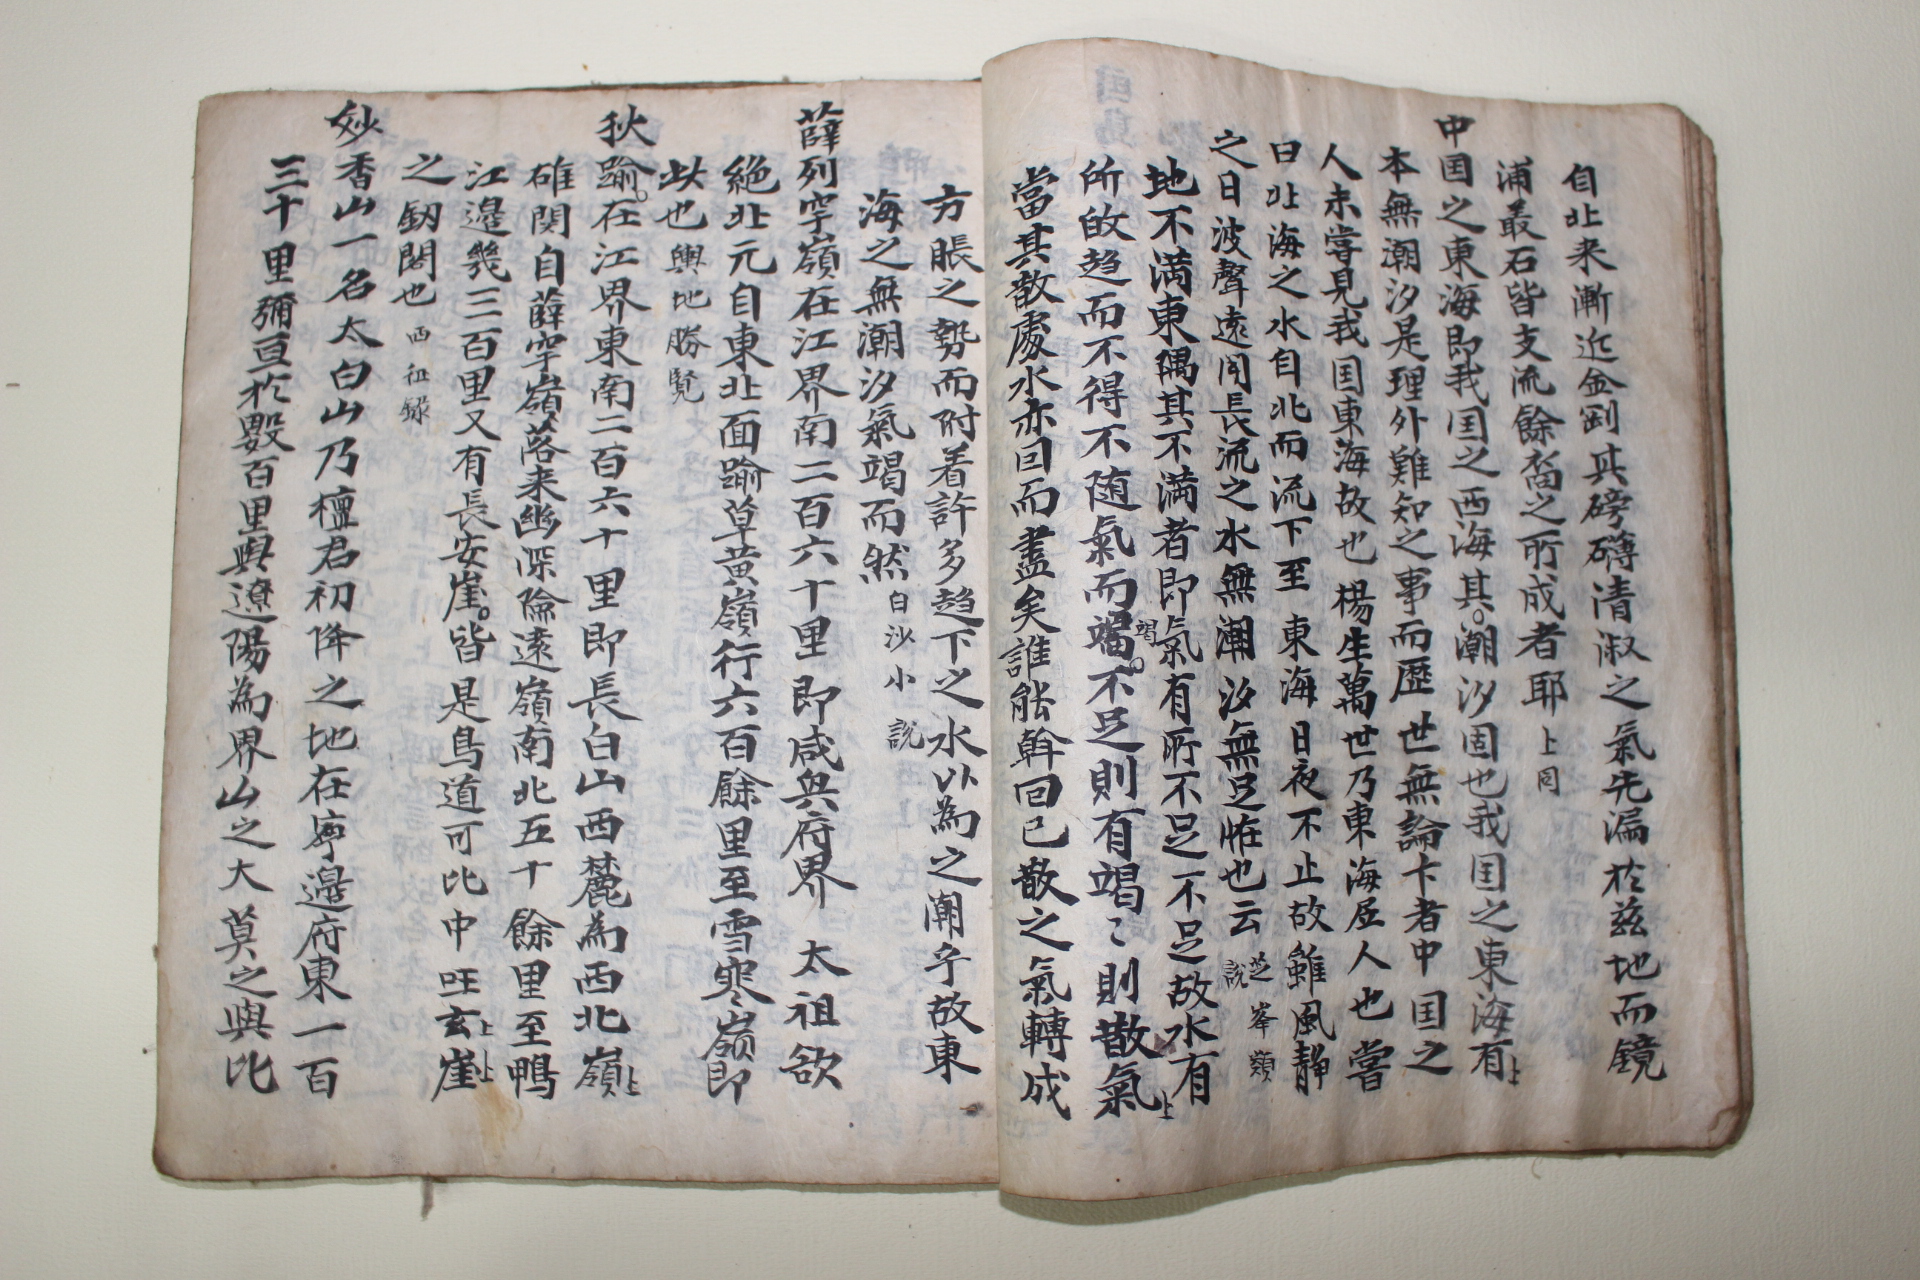 自北来漸近金剛其磅礴清淑之氣先漏於茲地而鏡
浦叢石皆支流餘裔之所成者耶 上同
中国之東海即我国之西海其潮汐固也我国之東海有
本無潮汐是理外難知之事而歷世無論卞者中国之
人未嘗見我国東海故也楊生萬世乃東海居人也嘗
曰北海之水自北而流下至 東海日夜不止故雖風静
之日波聲遠聞長流之水無潮汐無足恠也云 芝峯類說
地不滿東隅其不滿者即氣有所不足不足故水有
所敀趋而不得不随氣而竭不足則有竭〻則散氣
當其散處水亦回而盡矣誰能斡回已散之氣轉成
方脹之勢而附着許多趋下之水以為之潮乎故東
海之無潮汐氣竭而然 白沙小說
薛列罕嶺在江界南二百六十里即咸興府界 太祖欲
絶北元自東北面踰草黄嶺行六百餘里至雪寒嶺即
此也 輿地勝覧
狄踰在江界東南二百六十里即長白山西麓為西北嶺
碓関自薛罕嶺落来幽深險遠嶺南北五十餘里至鴨
江邊幾三百里又有長安崖皆是鳥道可比中咥玄崖
之釼閣也 西征録
妙香山一名太白山乃檀君初降之地在寧邊府東一百
三十里彌亘於數百里與遼陽為界山之大莫之與比